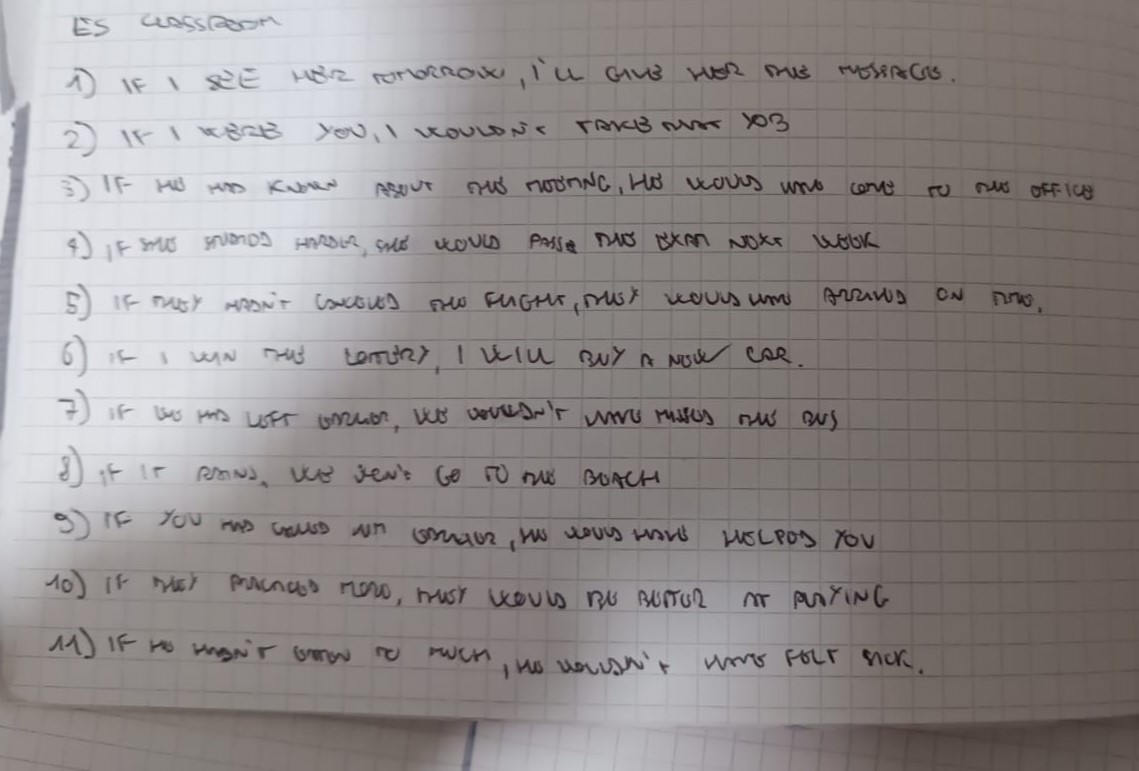 ES CLASSROOM
1) IF I SEE HER TOMORROW, I'LL GIVE HER THE MESSAGE.
2) IF I WERE YOU, I WOULDN'T TAKE THAT JOB
3) IF HE HAD KNOWN ABOUT THE MEETING, HE WOULD HAVE COME TO THE OFFICE
4) IF SHE STUDIED HARDER, SHE WOULD PASS THE EXAM NEXT WEEK
5) IF THEY HADN'T CANCELED THE FLIGHT, THEY WOULD HAVE ARRIVED ON TIME.
6) IF I WIN THE LOTTERY, I WILL BUY A NEW CAR.
7) IF WE HAD LEFT EARLIER, WE WOULDN'T HAVE MISSED THE BUS
8) IF IT RAINS, WE WON'T GO TO THE BEACH
9) IF YOU HAD CALLED HIM EARLIER, HE WOULD HAVE HELPED YOU
10) IF THEY PRACTICED MORE, THEY WOULD BE BETTER AT PLAYING
11) IF HE HADN'T EATEN TO MUCH, HE WOULDN'T HAVE FELT SICK.